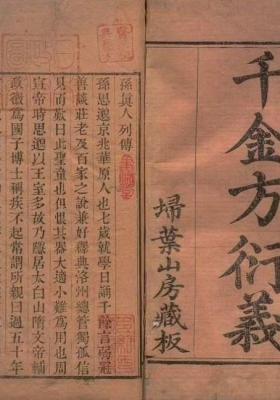 千金方衍義
埽葉山房藏板
孫眞人列傳
孫思邈京兆華原人也七歲就學日誦千餘言弱冠
善談莊老及百家之說兼好釋典洛州總管獨孤信
見而歎曰此聖童也但恨其器大適小難為用也周
宣帝時思邈以王室多故乃隱居太白山隋文帝輔
政徵為國子博士稱疾不起常謂所親曰過五十年